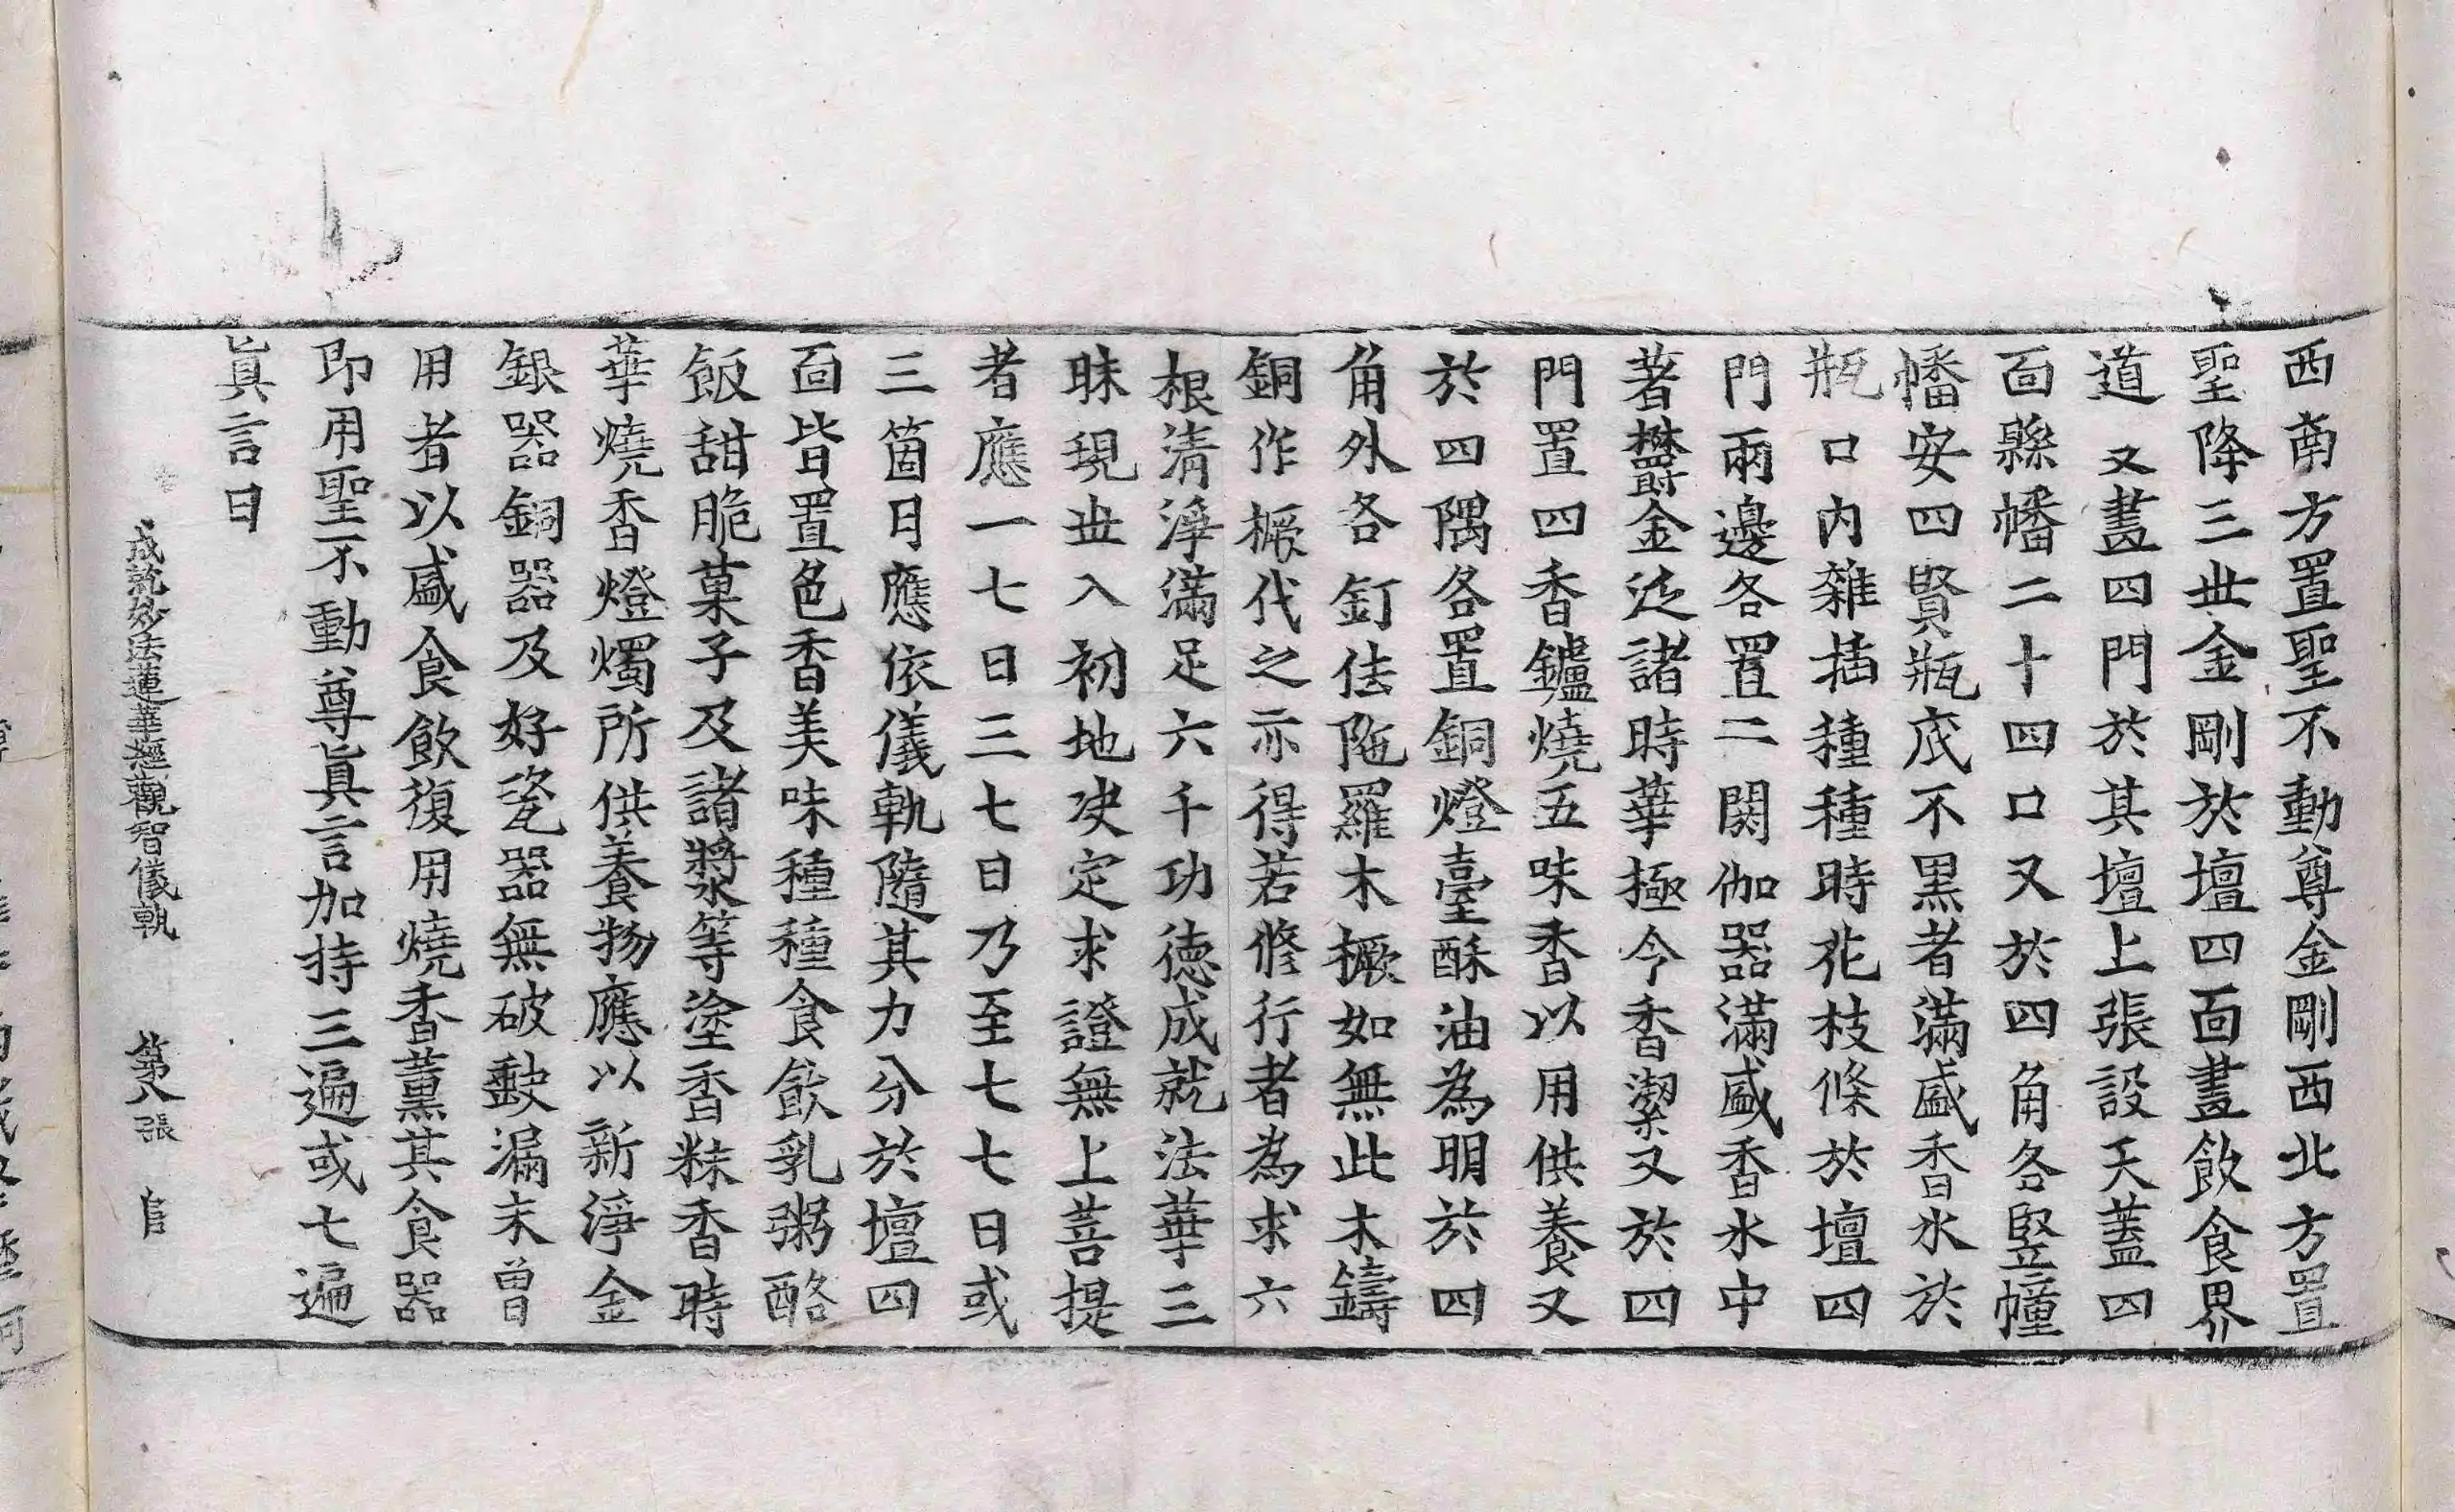 西南方置聖不動尊金剛西北方置
聖降三世金剛於壇四面畫飲食界
道又畫四門於其壇上張設天蓋四
面懸幡二十四口又於四角各竪幢
幡安四賢瓶底不黑者滿盛香水於
瓶口內雜揷種種時花枝條於壇四
門兩邊各置二閼伽器滿盛香水中
著欝金泛諸時華極令香潔又於四
門置四香鑪燒五味香以用供養又
於四隅各置銅燈臺酥油為明於四
角外各釘佉陁羅木橛如無此木鑄
銅作橛代之亦得若修行者為求六
根清淨滿足六千功德成就法華三
昧現世入初地決定求證無上菩提
者應一七日三七日乃至七七日或
三箇月應依儀軌隨其力分於壇四
面皆置色香美味種種食飲乳粥酪
飯甜脆菓子及諸漿等塗香粖香時
華燒香燈燭所供養物應以新淨金
銀器銅器及好瓷器無破䴡漏未曾
用者以盛食飲復用燒香薰其食器
即用聖不動尊眞言加持三遍或七遍
眞言曰
成就妙法蓮華經觀智儀軌 第八張